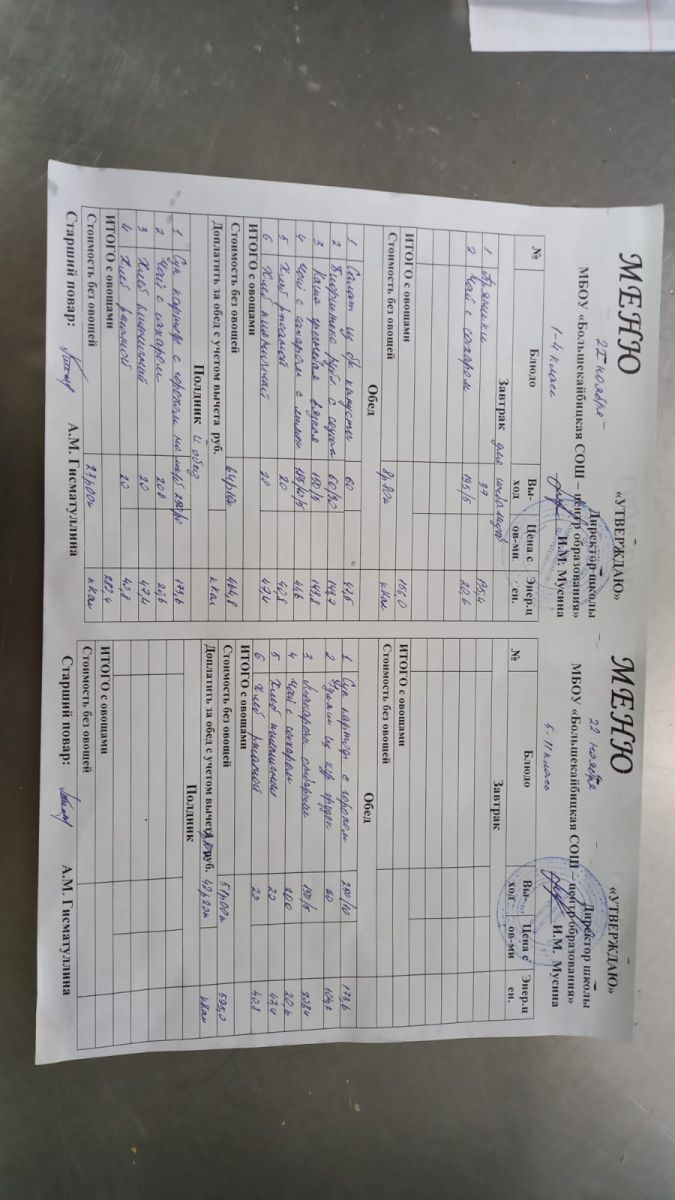 МЕНЮ
«УТВЕРЖДАЮ»
22 ноября
Директор школы
МБОУ «Большекайбицкая СОШ – центр образования»
1-4 класс
И.М. Мусина
№ Блюдо Вы-ход Цена с ов-ми Энер.ц ен.
Завтрак для
1 Пряники 37 135,4
2 Чай с сахаром 195/5 20,6
ИТОГО с овощами 156,0
Стоимость без овощей 8р80к кКал
Обед
1 Салат из св капусты 60 47,5
2 60/30 149,7
3 Каша гречневая вязкая 150/5 149,8
4 Чай с сахаром с лимон
5 Хлеб ржаной 20 40,8
6 Хлеб пшеничный 20 47,4
ИТОГО с овощами
Стоимость без овощей 464,8
Доплатить за обед с учетом вычета руб. кКал
Полдник и обед
1 Суп картоф с горохом 173,6
2 Чай с сахаром 200 20,6
3 Хлеб пшеничный 20 47,4
4 Хлеб ржаной 20 40,8
ИТОГО с овощами 282,4
Стоимость без овощей 23р00к кКал
Старший повар: А.М. Гисматуллина
МЕНЮ
«УТВЕРЖДАЮ»
22 ноября
Директор школы
МБОУ «Большекайбицкая СОШ – центр образования»
5-11 класс
И.М. Мусина
№ Блюдо Вы-ход Цена с ов-ми Энер.ц ен.
Завтрак
ИТОГО с овощами
Стоимость без овощей
Обед
1 Суп картоф. с горохом 250/10 173,6
2 Гуляш из кур грудки 60
3 Макароны отварные 150/5
4 Чай с сахаром 200 20,6
5 Хлеб пшеничный 20 47,4
6 Хлеб ржаной 20 40,8
ИТОГО с овощами
Стоимость без овощей 51р00к 595,0
Доплатить за обед с учетом вычета руб. 42р20к кКал
Полдник
ИТОГО с овощами
Стоимость без овощей
Старший повар: А.М. Гисматуллина